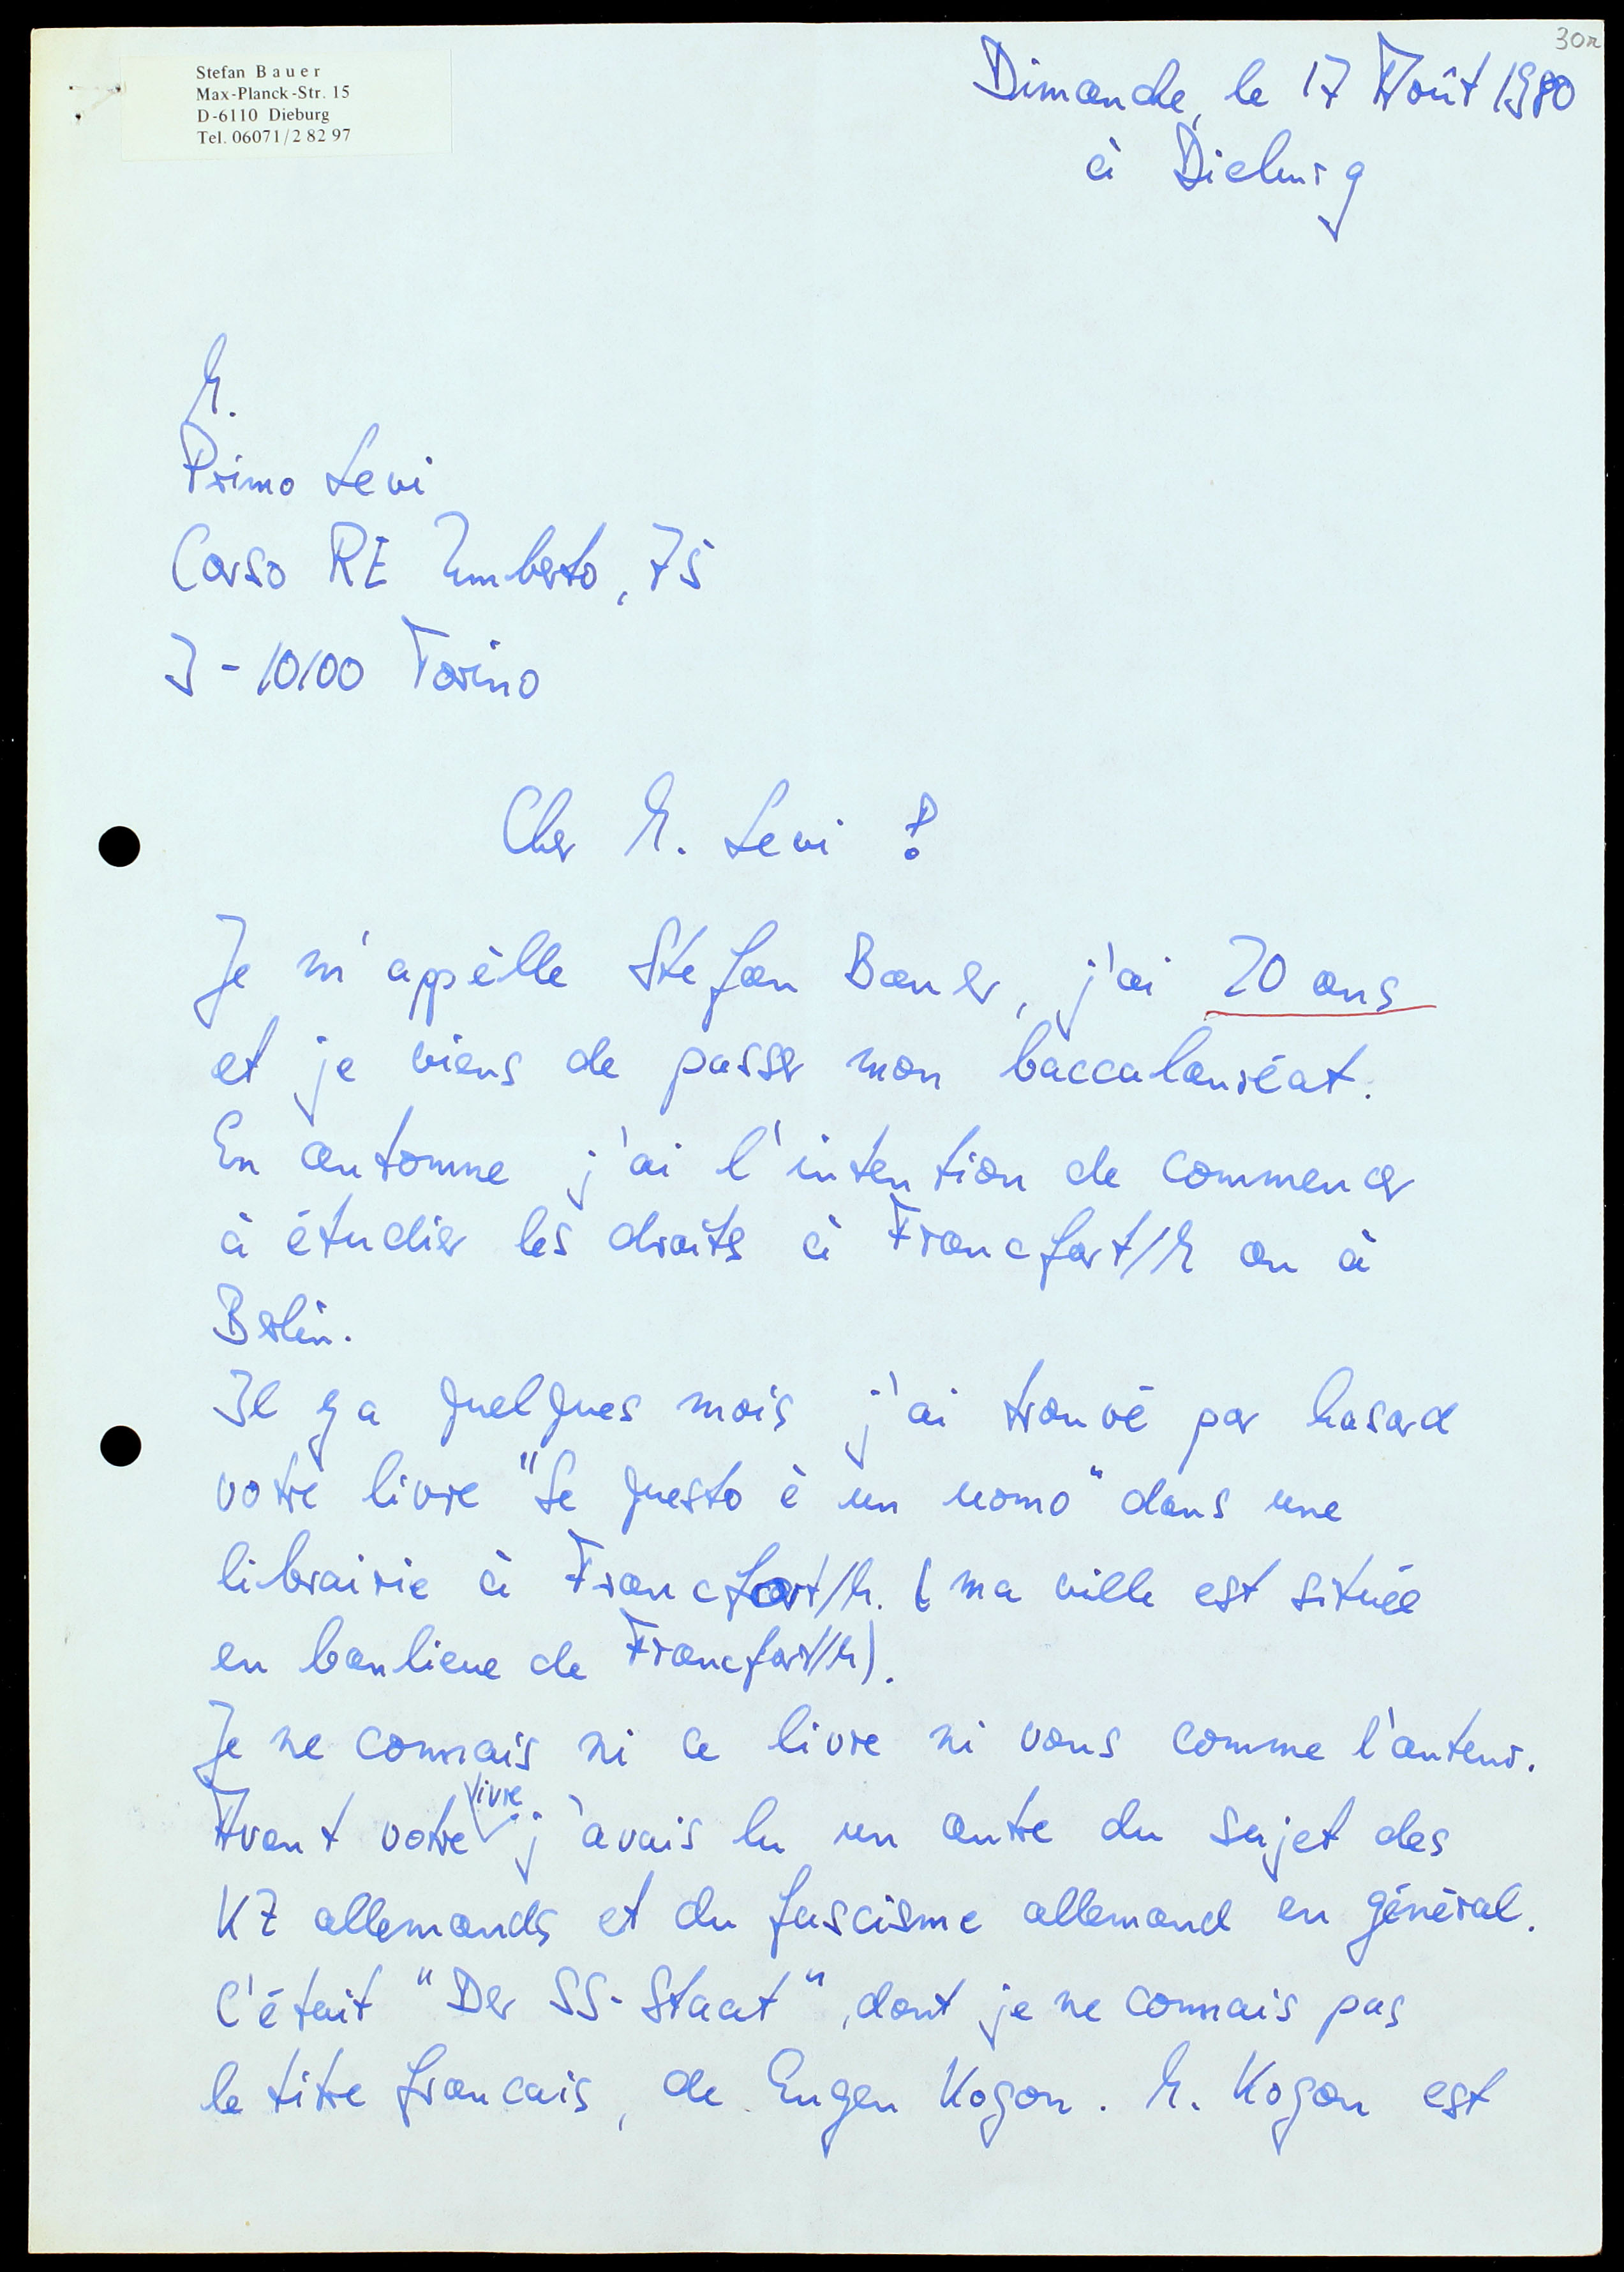 30r
Stefan Bauer
Max-Planck-Str. 15
D-6110 Dieburg
Tel. 06071/2 82 97
Dimanche, le 17 Août 1980
à Dieburg
M.
Primo Levi
Corso RE Umberto, 75
I-10100 Torino
Cher M. Levi !
Je m'appèlle Stefan Bauer, j'ai 20 ans
et je viens de passer mon baccalauréat.
En automne j'ai l'intention de commencer
à étudier les droits à Francfort/M ou à
Berlin.
Il y a quelques mois j'ai trouvé par hasard
votre livre "Se questo è un uomo" dans une
librairie à Francfort/M. (ma ville est située
en banlieue de Francfort/M).
Je ne connais ni ce livre ni vous comme l'auteur.
Avant votre livre j'avais lu un autre du sujet des
KZ allemands et du fascisme allemand en général.
C'était "Der SS-Staat", dont je ne connais pas
le titre francais, de Eugen Kogon. M. Kogon est